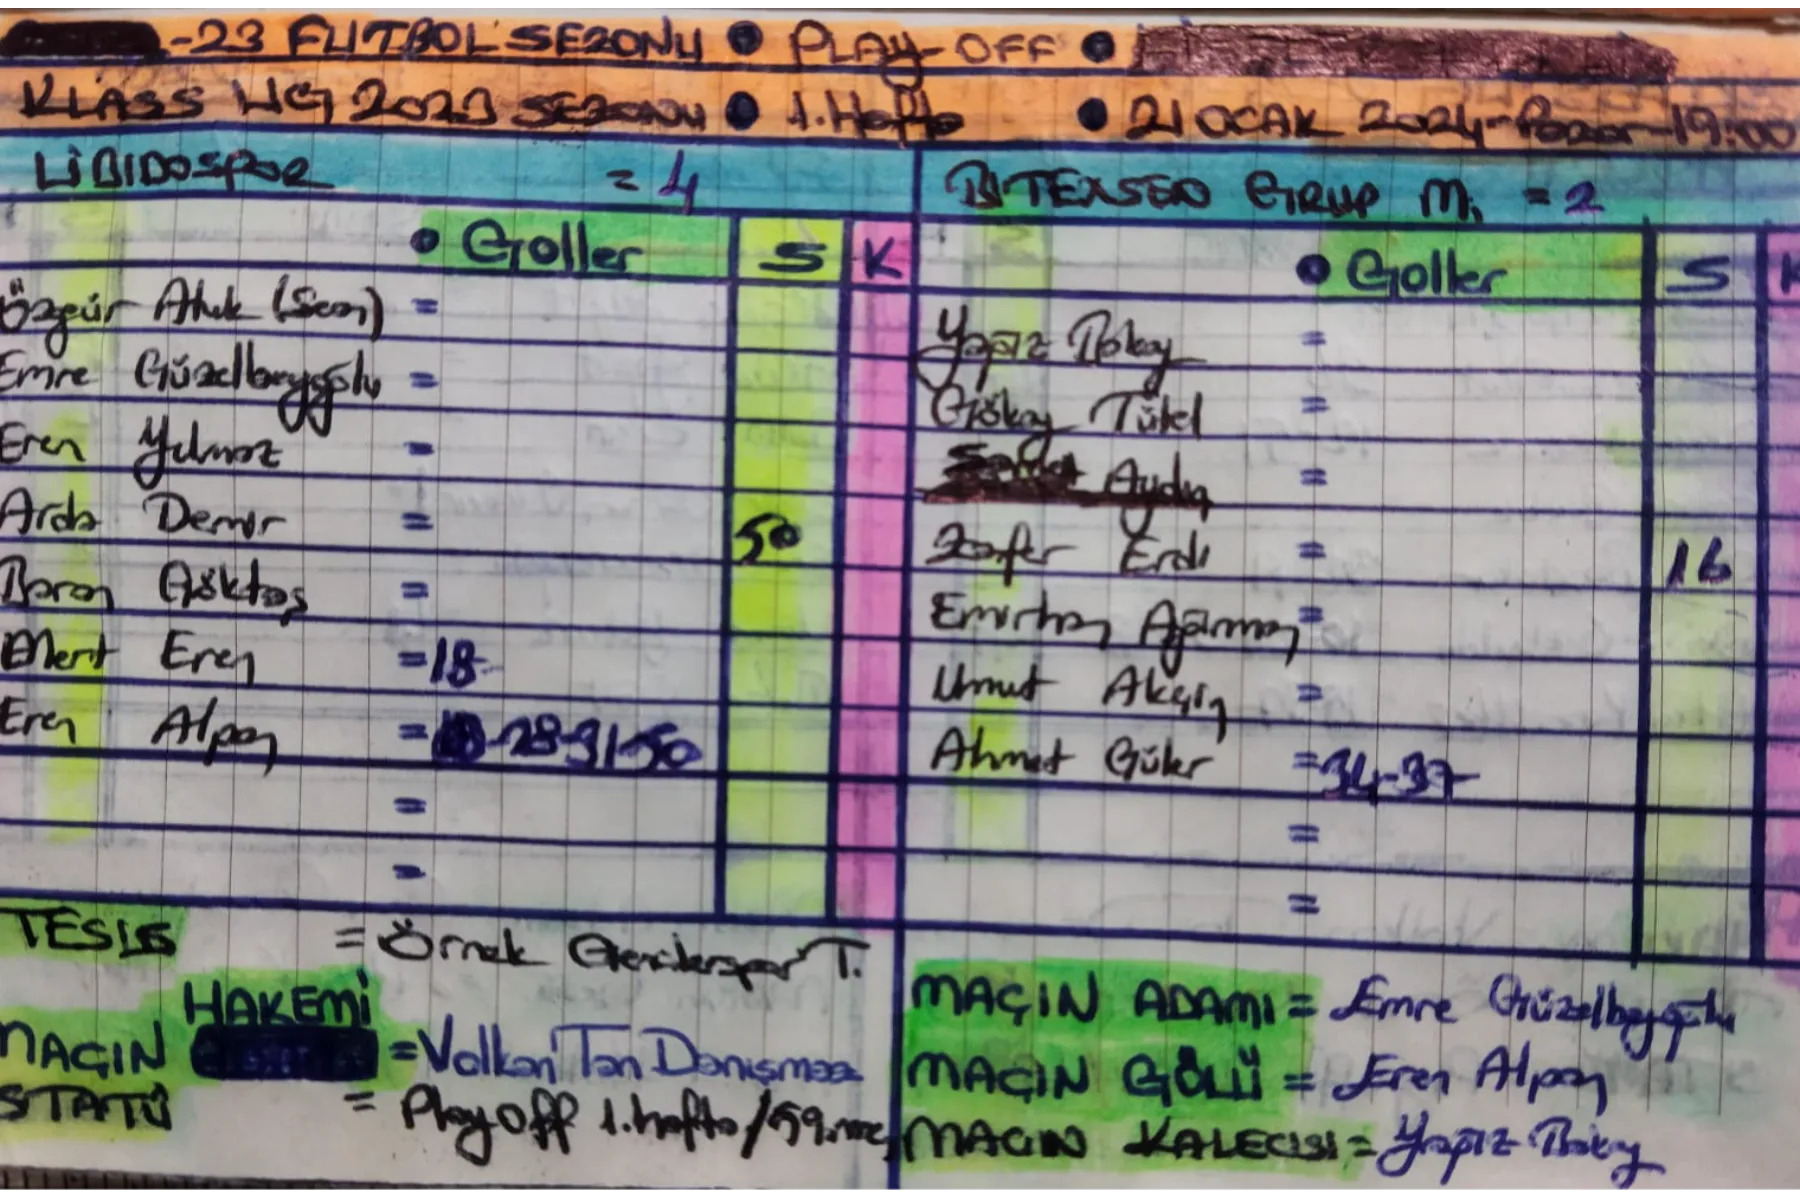 -23 FUTBOL SEZONU ● PLAY-OFF ●
KLASS LİG 2023 SEZONU ● 1.Hafta ● 21 OCAK 2024-Pazar-19:00
LİBİDOSPOR = 4
BITEXSEN GRUP M. = 2
● Goller S K
Özgür Atık (Sarı) =
Emre Güzelbeyoğlu =
Eren Yılmaz =
Arda Demir = 50
Baran Göktaş =
Mert Eren =18-
Eren Alpay = -28-31-50
=
=
● Goller S K
Yapız =
Gökay Tükel =
Aydın =
Zafer Erdi = 16
Emirhan =
Umut Akçin =
Ahmet Güler =34-37-
=
=
TESİS = Örnek Gencilerspor T.
MAÇIN HAKEMİ =Volkan Tan Danışmaz
STATÜ = Play Off 1.hafta/59.maç
MAÇIN ADAMI = Emre Güzelbeyoğlu
MAÇIN GÖLÜ = Eren Alpay
MAÇIN KALECİSİ = Yapız